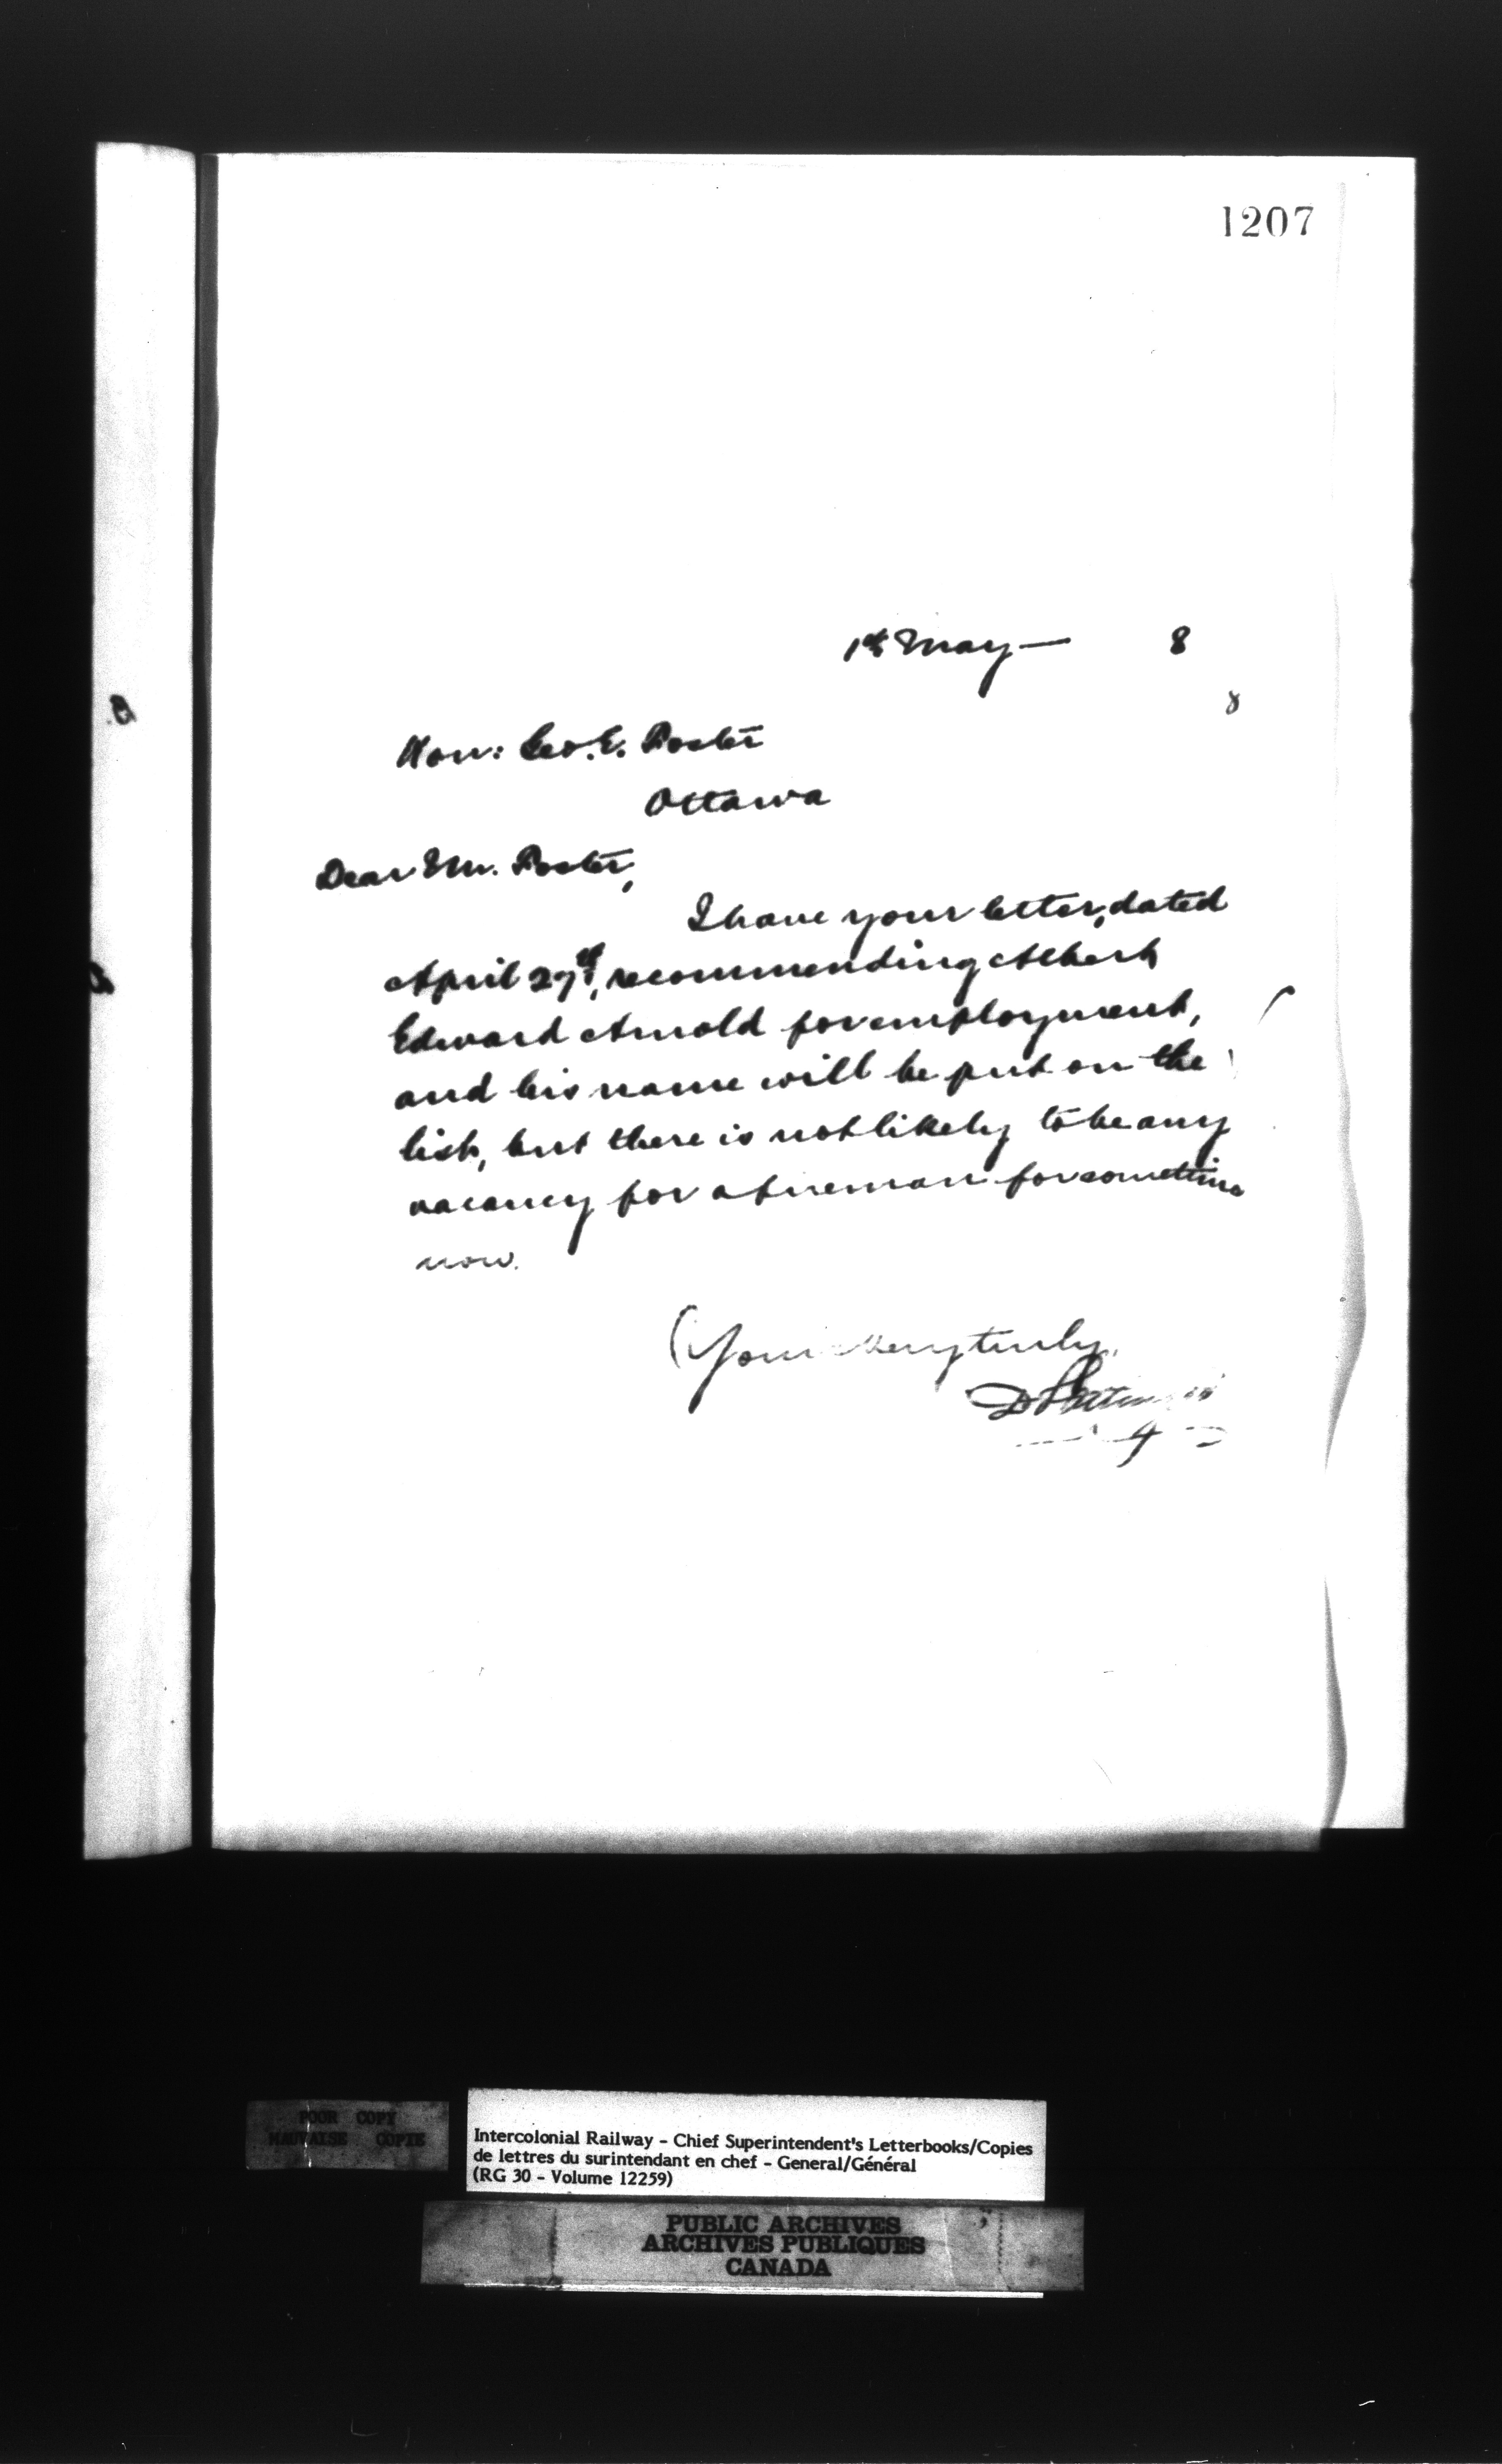 1207
1st May — 8
8
Hon: Geo. E. Foster
Ottawa
Dear Mr. Foster,
I have your letter, dated
April 27th, recommending Albert
Edward Arnold for employment,
and his name will be put on the
list, but there is not likely to be any
vacancy for a fireman for sometime
now.
Yours very truly,
D Pottinger
POOR COPY
MAUVAISE COPIE
Intercolonial Railway - Chief Superintendent's Letterbooks/Copies
de lettres du surintendant en chef - General/Général
(RG 30 - Volume 12259)
PUBLIC ARCHIVES
ARCHIVES PUBLIQUES
CANADA